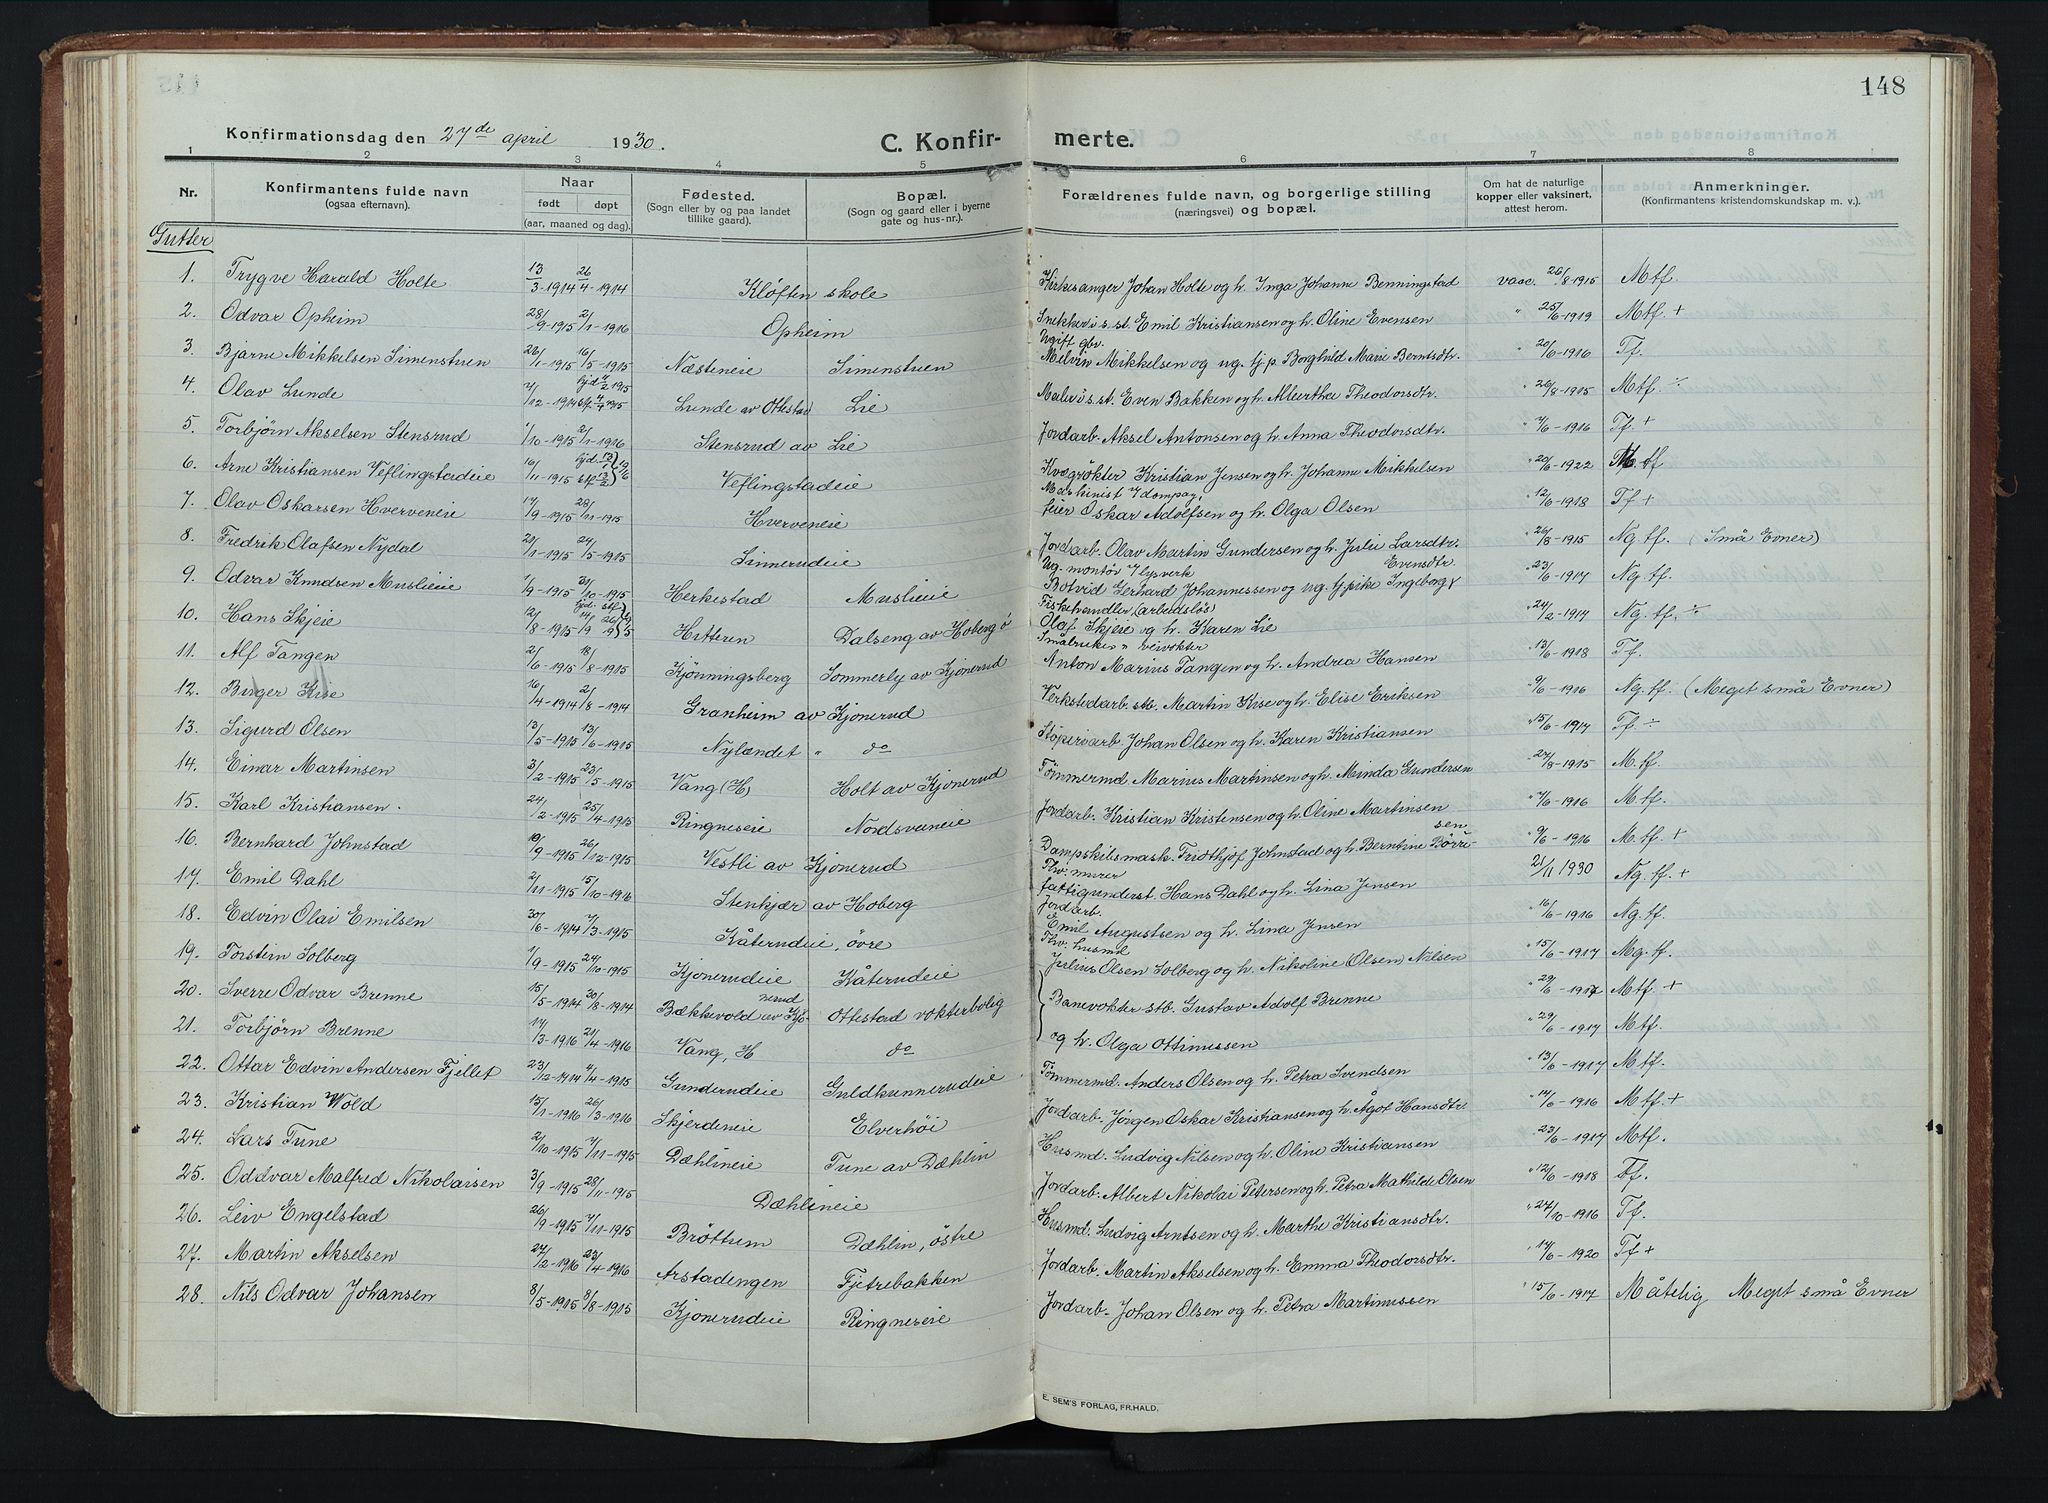 148
Konfirmationsdag den 27de april 1930.
C. Konfir- merte.
1 2 3 4 5 6 7 8
Nr.
Konfirmantens fulde navn
(ogsaa efternavn).
Naar
født døpt
(aar, maaned og dag).
Fødested.
(Sogn eller by og paa landet
tillike gaard).
Bopæl.
(Sogn og gaard eller i byerne
gate og hus-nr.).
Forældrenes fulde navn, og borgerlige stilling
(næringsvei) og bopæl.
Om hat de naturlige
kopper eller vaksinert,
attest herom.
Anmerkninger.
(Konfirmantens kristendomskundskap m. v.).
Gutter
1. Trygve Harald Holte 13/3-1914 26/4-1914 Kløften skole Kirkesanger Johan Holte og h. Inga Johanne Benningstad vacc. 26/8-1915 Mtf.
2. Odvar Opheim 28/9-1915 2/1-1916 Opheim Snekker i s. st. Emil Kristiansen og h. Oline Evensen " 25/6-1919 Mtf. +
3. Bjarne Mikkelsen Simenstuen 26/1-1915 16/5-1915 Næstineie Simenstuen Ugift gbr. Melvin Mikkelsen og ug. tj.p. Borghild Marie Berntsdtr. " 20/6-1916 Tf.
4. Olav Lunde 2/12-1914 hjd. 7/2 1915 st.f. 4/4 1915 Lunde av Ottestad Lie Maler i s. st. Even Bakken og h. Albertha Theodorsdtr. " 26/8-1915 Mtf. ÷
5. Torbjørn Akselsen Stensrud 1/10-1915 2/1-1916 Stensrud av Lie Jordarb. Aksel Antonsen og h. Anna Theodorsdtr. " 7/6-1916 Tf. +
6. Arne Kristiansen Veflingstadeie 16/11-1915 Veflingstadeie Kvægrøkter Kristian Jensen og h. Johanne Mikkelsen " 20/6-1922 M. tf
7. Olav Oskarsen Hverveneie 17/9-1915 28/11-1915 Hverveneie Maskinist Oskar Adolfsen og h. Olga Olsen " 12/6-1918 Tf +
8. Fredrik Olafsen Nydal 20/1-1915 24/5-1915 Sinnerudeie Jordarb. Olav Martin Gundersen og h. Julie Larsdtr. " 26/8-1915 Ng. tf. (Små Evner)
9. Odvar Knudsen Muslieie 1/9-1915 31/10-1915 Herkestad Muslieie Ug. montør v lysverk Botvid Gerhard Johannessen og ug. tj.pike Ingeborg Evensdtr. " 23/6-1917 Ng. tf.
10. Hans Skjeie 12/8-1915 Hitteren Dalseng av Hoberg ø Fiskehandler (arbeidsløs) Olaf Skjeie og h. Karen Lie " 24/2-1917 Ng. tf. ÷
11. Alf Tangen 2/6-1915 18/8-1915 Kjønningsberg Sommerly av Kjonerud Småbruker " veivokter Anton Marius Tangen og h. Andrea Hansen " 13/6-1918 Tf.
12. Birger Kise 16/4-1914 2/8-1914 Granheim av Kjonerud Verkstedarb. stb. Martin Kise og h. Elise Eriksen " 9/6-1916 Ng. tf. (Meget små Evner)
13. Sigurd Olsen 13/5-1915 13/6-1915 Nylændet " do Støperiarb. Johan Olsen og h. Karen Kristiansen " 15/6-1917 Tf ÷
14. Einar Martinsen 3/2-1915 23/5-1915 Vang (H) Holt av Kjonerud Tømmermd. Marius Martinsen og h. Minda Gundersen " 27/8-1915 M. tf.
15. Karl Kristiansen. 24/2-1915 25/4-1915 Ringneseie Nordsveneie Jordarb. Kristian Kristensen og h. Oline Martinsen " 7/6-1916 M. tf.
16. Bernhard Johnstad 19/9-1915 26/12-1915 Vestli av Kjonerud Dampskibsmask. Fridthjof Johnstad og h. Berntine Børresen " 9/6-1916 M. tf. +
17. Emil Dahl 2/11-1915 15/10-1916 Stenkjær av Hoberg Fhv. murer fattigunderst. Hans Dahl og h. Lina Jensen 21/11 1930 Ng. tf. +
18. Edvin Olai Emilsen 30/6-1914 7/3-1915 Kåterudeie, øvre Jordarb. Emil Augustsen og h. Lina Jensen " 16/6-1916 Ng. tf.
19. Torstein Solberg 1/9-1915 24/10-1915 Kjonerudeie Kåterudeie Fhv. husmd. Julius Olsen Solberg og h. Nikoline (Olsen) Nilsen " 15/6-1917 Mg. tf.
20. Sverre Odvar Brenne 15/5-1914 30/8-1914 Bækkevold av Kjonerud Ottestad vokterbolig Banevokter stb. Gustav Adolf Brenne " 29/6-1917 Mtf. +
21. Torbjørn Brenne 17/3-1916 21/4-1916 Vang, H do og h. Olga Ottinussen " 29/6-1917 Mtf.
22. Ottar Edvin Andersen Fjellet 23/12-1914 4/4-1915 Gunderudeie Guldkunnerudeie Tømmermd. Anders Olsen og h. Petra Svendsen " 13/6-1917 Mtf.
23. Kristian Wold 15/1-1916 26/3-1916 Skjerdeneie Elverhøi Jordarb. Jørgen Oskar Kristiansen og h. Ågot Hansdtr. " 14/6-1916 Mtf. +
24. Lars Tune 2/10-1915 7/11-1915 Dæhlineie Tune av Dæhlin Husmd. Ludvig Nilsen og h. Oline Kristiansen " 23/6-1917 Mtf.
25. Oddvar Malfred Nikolaisen 3/9-1915 28/11-1915 Dæhlineie Jordarb. Albert Nikolai Petersen og h. Petra Mathilde Olsen " 12/6-1918 Tf.
26. Leiv Engelstad 26/9-1915 7/11-1915 Brøttum Dæhlin, østre Husmd. Ludvig Arntsen og h. Marthe Kristiansdtr. " 27/10-1916 Tf.
27. Martin Akselsen 24/2-1916 23/4-1916 Arstadengen Fjetrebakken Jordarb. Martin Akselsen og h. Emma Theodorsdtr. " 14/6-1920 Tf +
28. Nils Odvar Johansen 8/5-1915 8/8-1915 Kjonerudeie Ringneseie Jordarb. Johan Olsen og h. Petra Martinussen " 15/6-1917 Måtelig Meget små Evner
E. SEM'S FORLAG, FR.HALD.